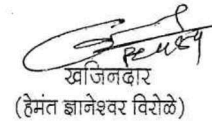 खजिनदार
(हेमंत ज्ञानेश्वर विरोळे)